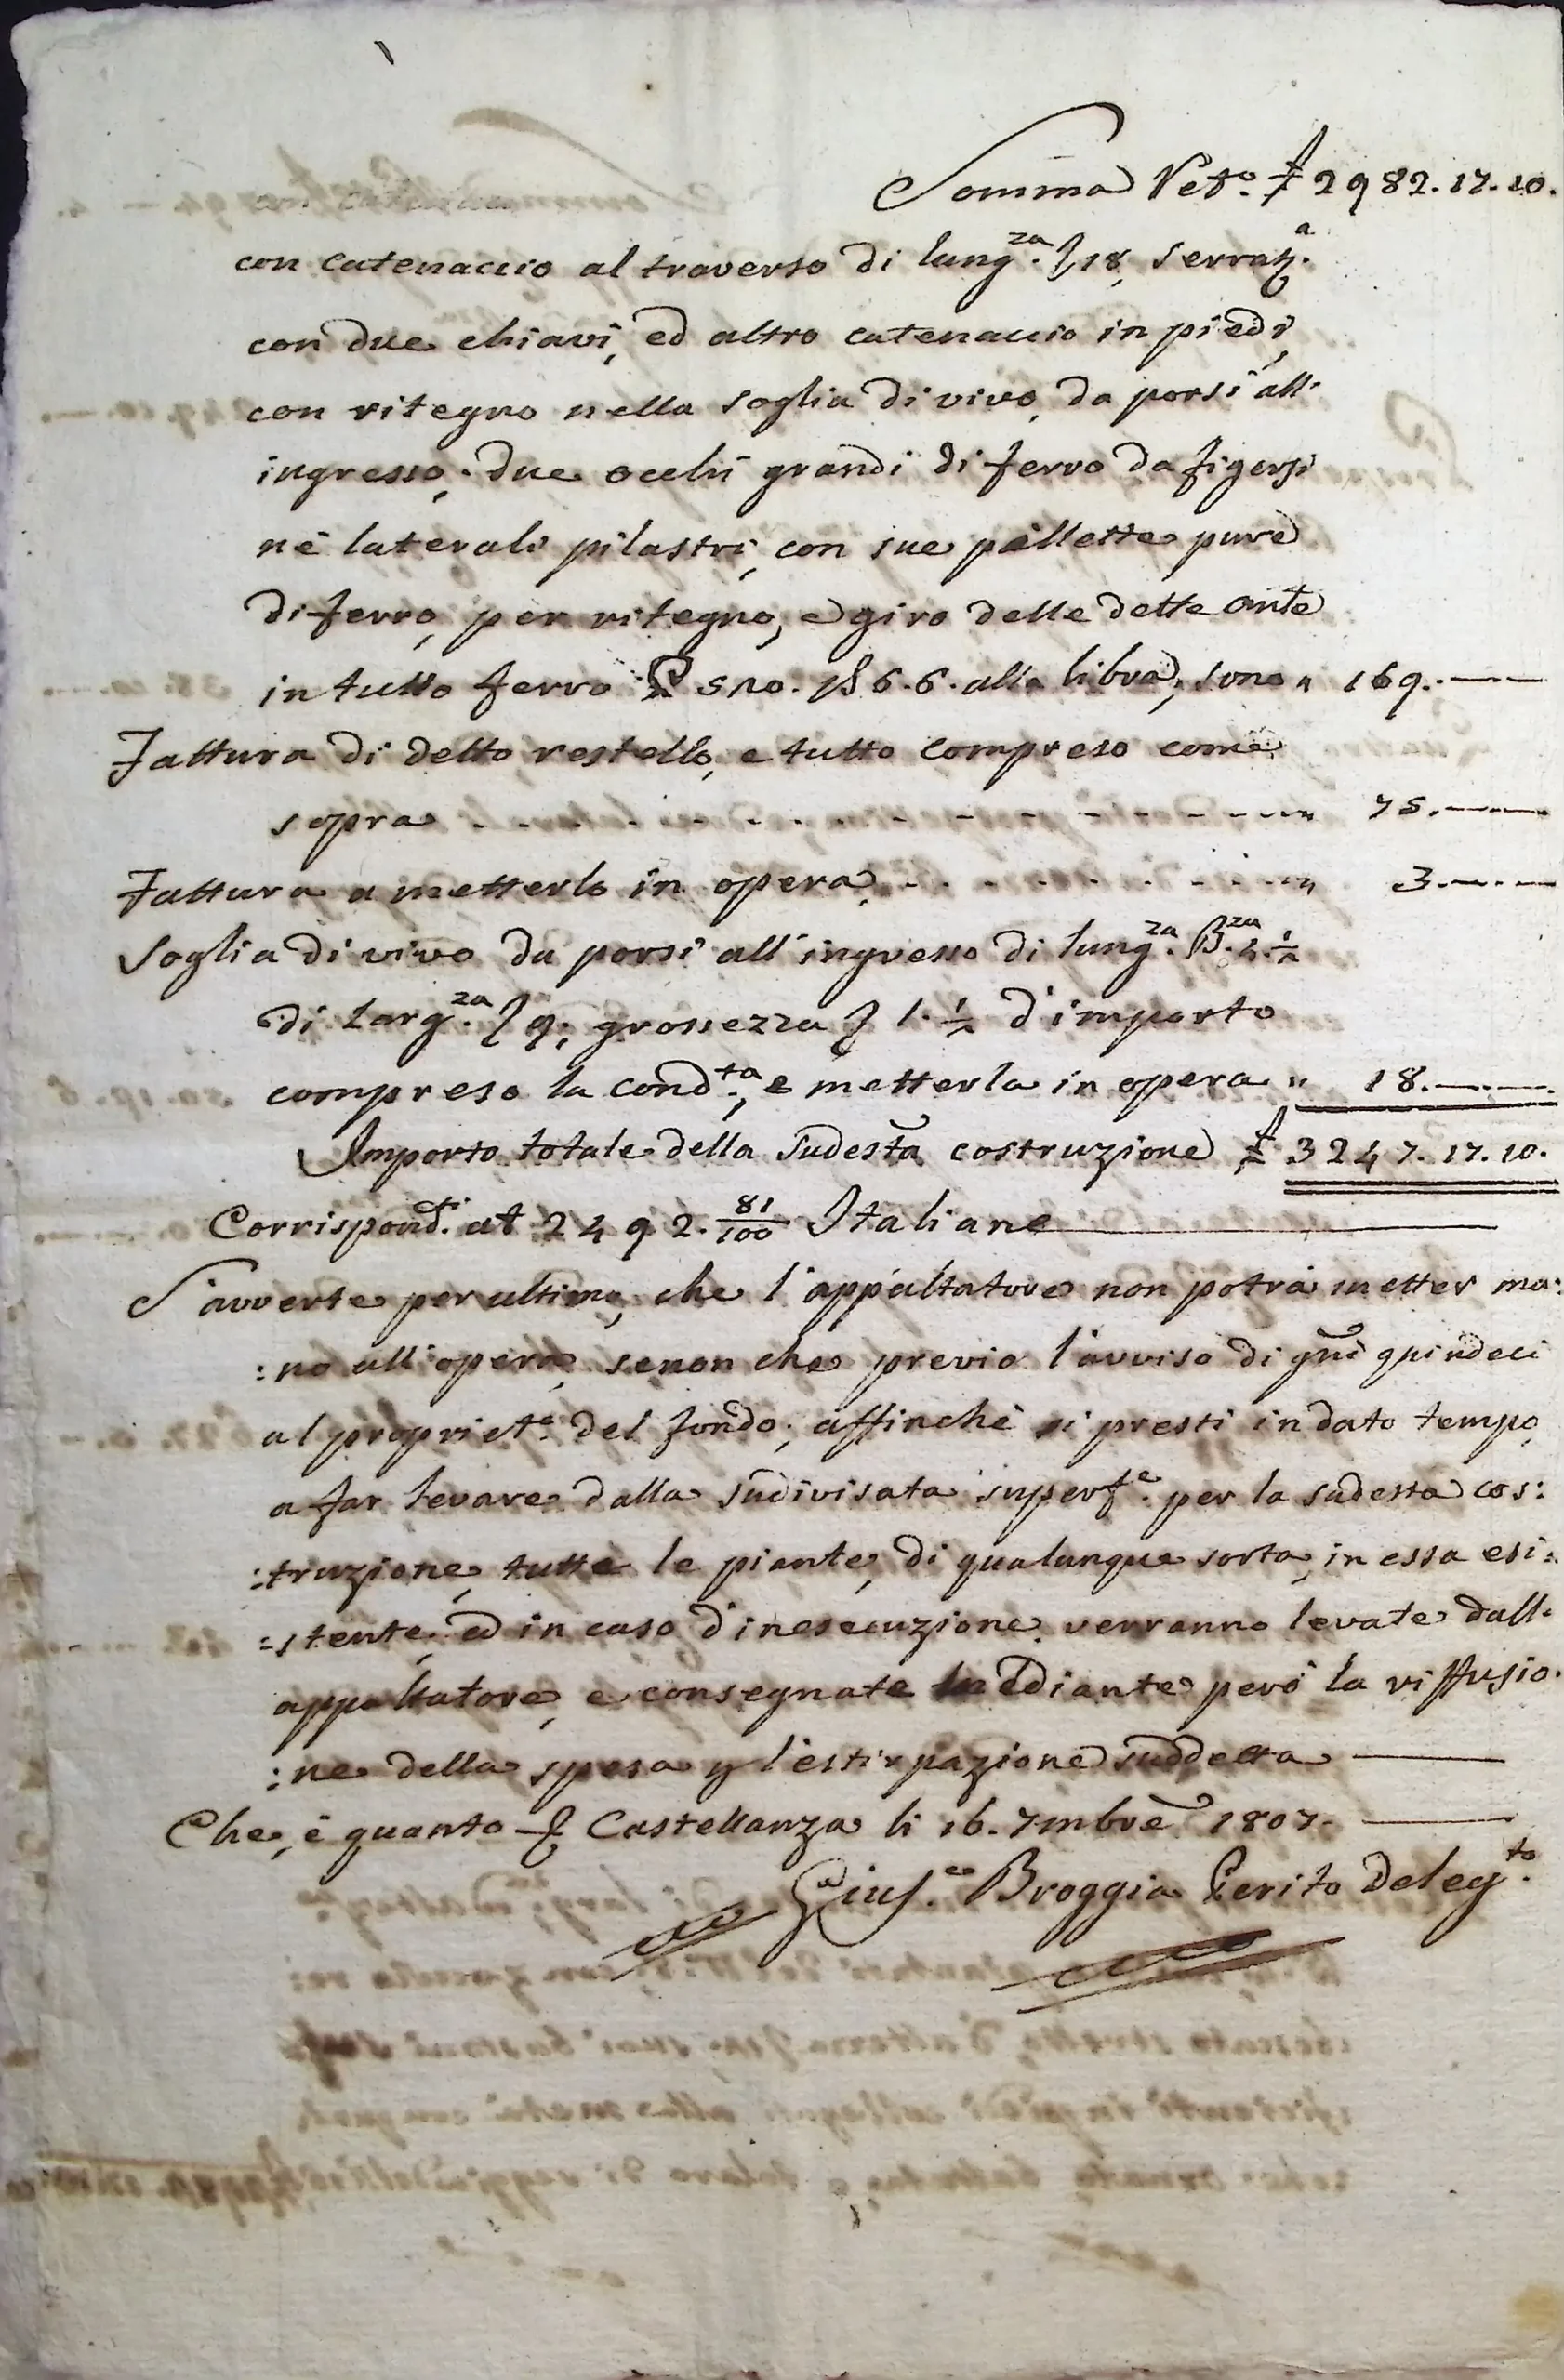 Somma Ret.o £ 2982.17.10.
con catenaccio al traverso di lung.za 18, serrat.a
con due chiavi, ed altro catenaccio in piedi,
con ritegno nella soglia di vivo, da porsi all'
ingresso, due occhi grandi di ferro da figersi
nè laterali pilastri, con sue pallette pure
di ferro, per ritegno, e giro delle dette ante
in tutto ferro 520. 6.6. alla libra, sono " 169.——
Fattura di detto restello, e tutto compreso come
sopra - - - - - - - - - " 75.——
Fattura a metterlo in opera - - - - - - " 3.——
Soglia di vivo da porsi all'ingresso di lung.za B.za 4.½
di larg.za 9, grossezza 1.½ d'importo
compreso la cond.ta, e metterla in opera " 18.——
Importo totale della sudetta costruzione £ 3247.17.10.
Corrispond.ti a £ 2492.81/100 Italiane——
S'avverte per ultimo, che l'appaltatore non potrà metter ma:
:no all'opera, senon che previo l'avviso di gni quindeci
al propriet.o del fondo, affinchè si presti in dato tempo,
a far levare dalla sudivisata superf.e per la sudetta cos:
:truzione, tutte le piante, di qualunque sorta, in essa esi:
:stente, ed in caso d'inesecuzione, verranno levate dall'
appaltatore, e consegnate mediante però la riffusio:
:ne della spesa p l'estirpazione suddetta ——
Che, è quanto Castellanza li 16. 7mbre 1807. ——
Gius.e Broggia Perito Deleg.to